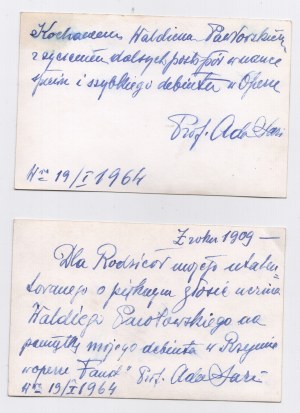 Kochanemu Waldiemu Pawłowskiemu
z życzeniem dalszych postępów w nauce
śpiewu i szybkiego debiutu w Operze
Prof. Ada Sari
W-wa 19/I 1964
Z roku 1909 —
Dla Rodziców mojego utalen-
towanego o pięknym głosie ucznia
Waldiego Pawłowskiego na
pamiątkę mojego debiutu w Rzymie
w operze "Faust" Prof. Ada Sari
W-wa 19/I 1964